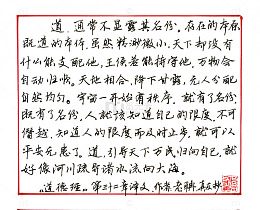 道,通常不显露其名份。存在的本原
既道的本体,虽然精渺微小,天下却没有
什么能支配他,王侯若能持守他,万物会
自动归依。天地相合,降下甘露,无人分配
自然均匀。宇宙一开始有秩序,就有了名份
既有了名份,人就该知道自己的限度,不可
僭越,知道人的限度而及时止步,就可以
平安无患了。道,引导天下万民归向自己,就
好像河川疏导诸水流向大海。
《道德经》第三十二章译文